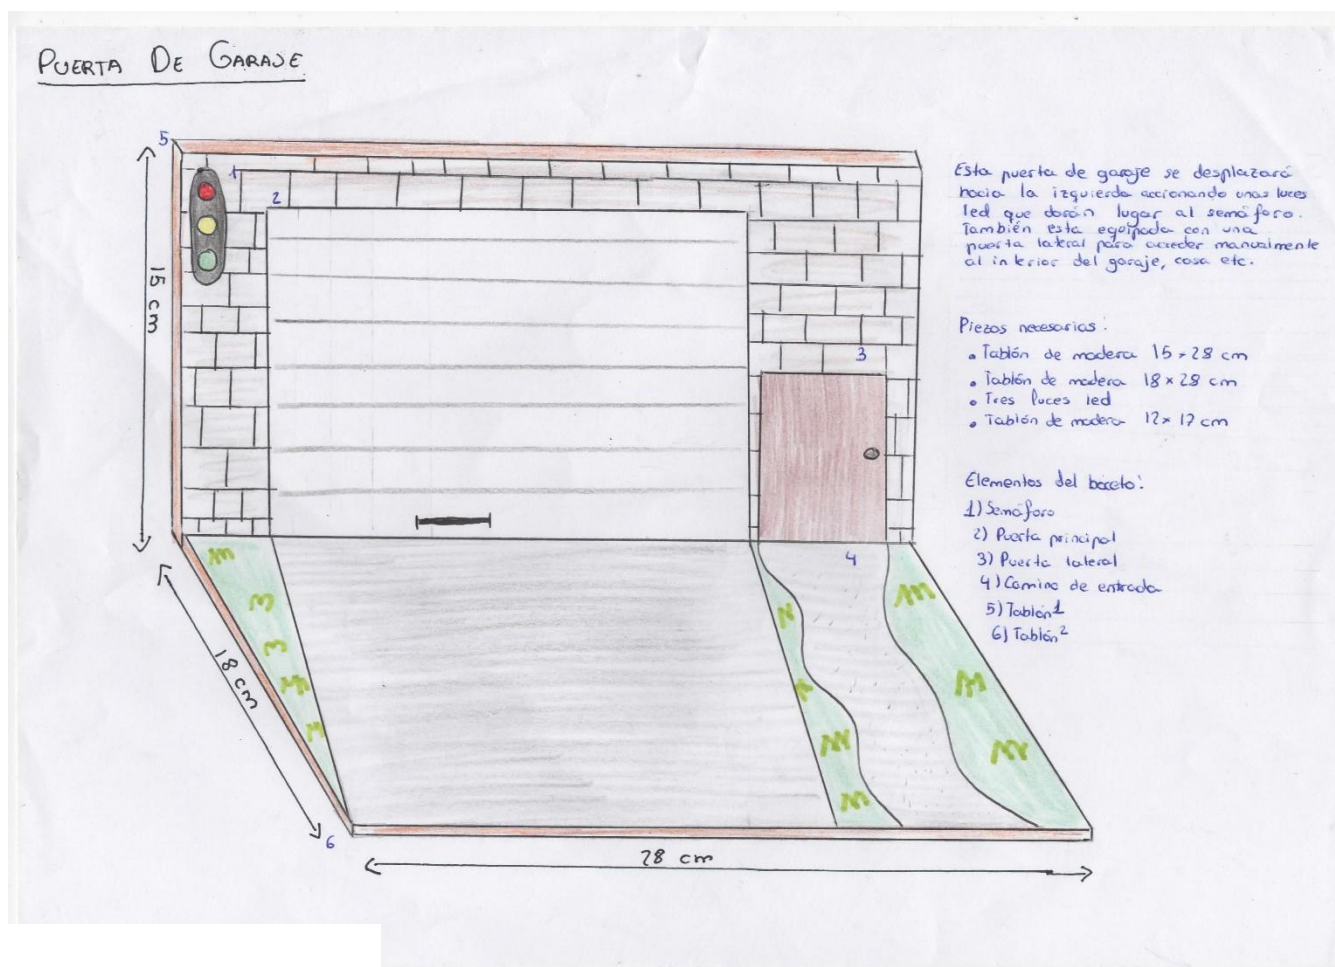 PUERTA DE GARAJE
5
1
2
15 cm
3
4
18 cm
6
28 cm
Esta puerta de garaje se desplazará
hacia la izquierda accionando unas luces
led que darán lugar al semáforo.
También esta equipada con una
puerta lateral para acceder manualmente
al interior del garaje, casa etc.
Piezas necesarias:
• Tablón de madera 15 × 28 cm
• Tablón de madera 18 × 28 cm
• Tres luces led
• Tablón de madera 12 × 17 cm
Elementos del boceto:
1) Semáforo
2) Puerta principal
3) Puerta lateral
4) Camino de entrada
5) Tablón 1
6) Tablón 2